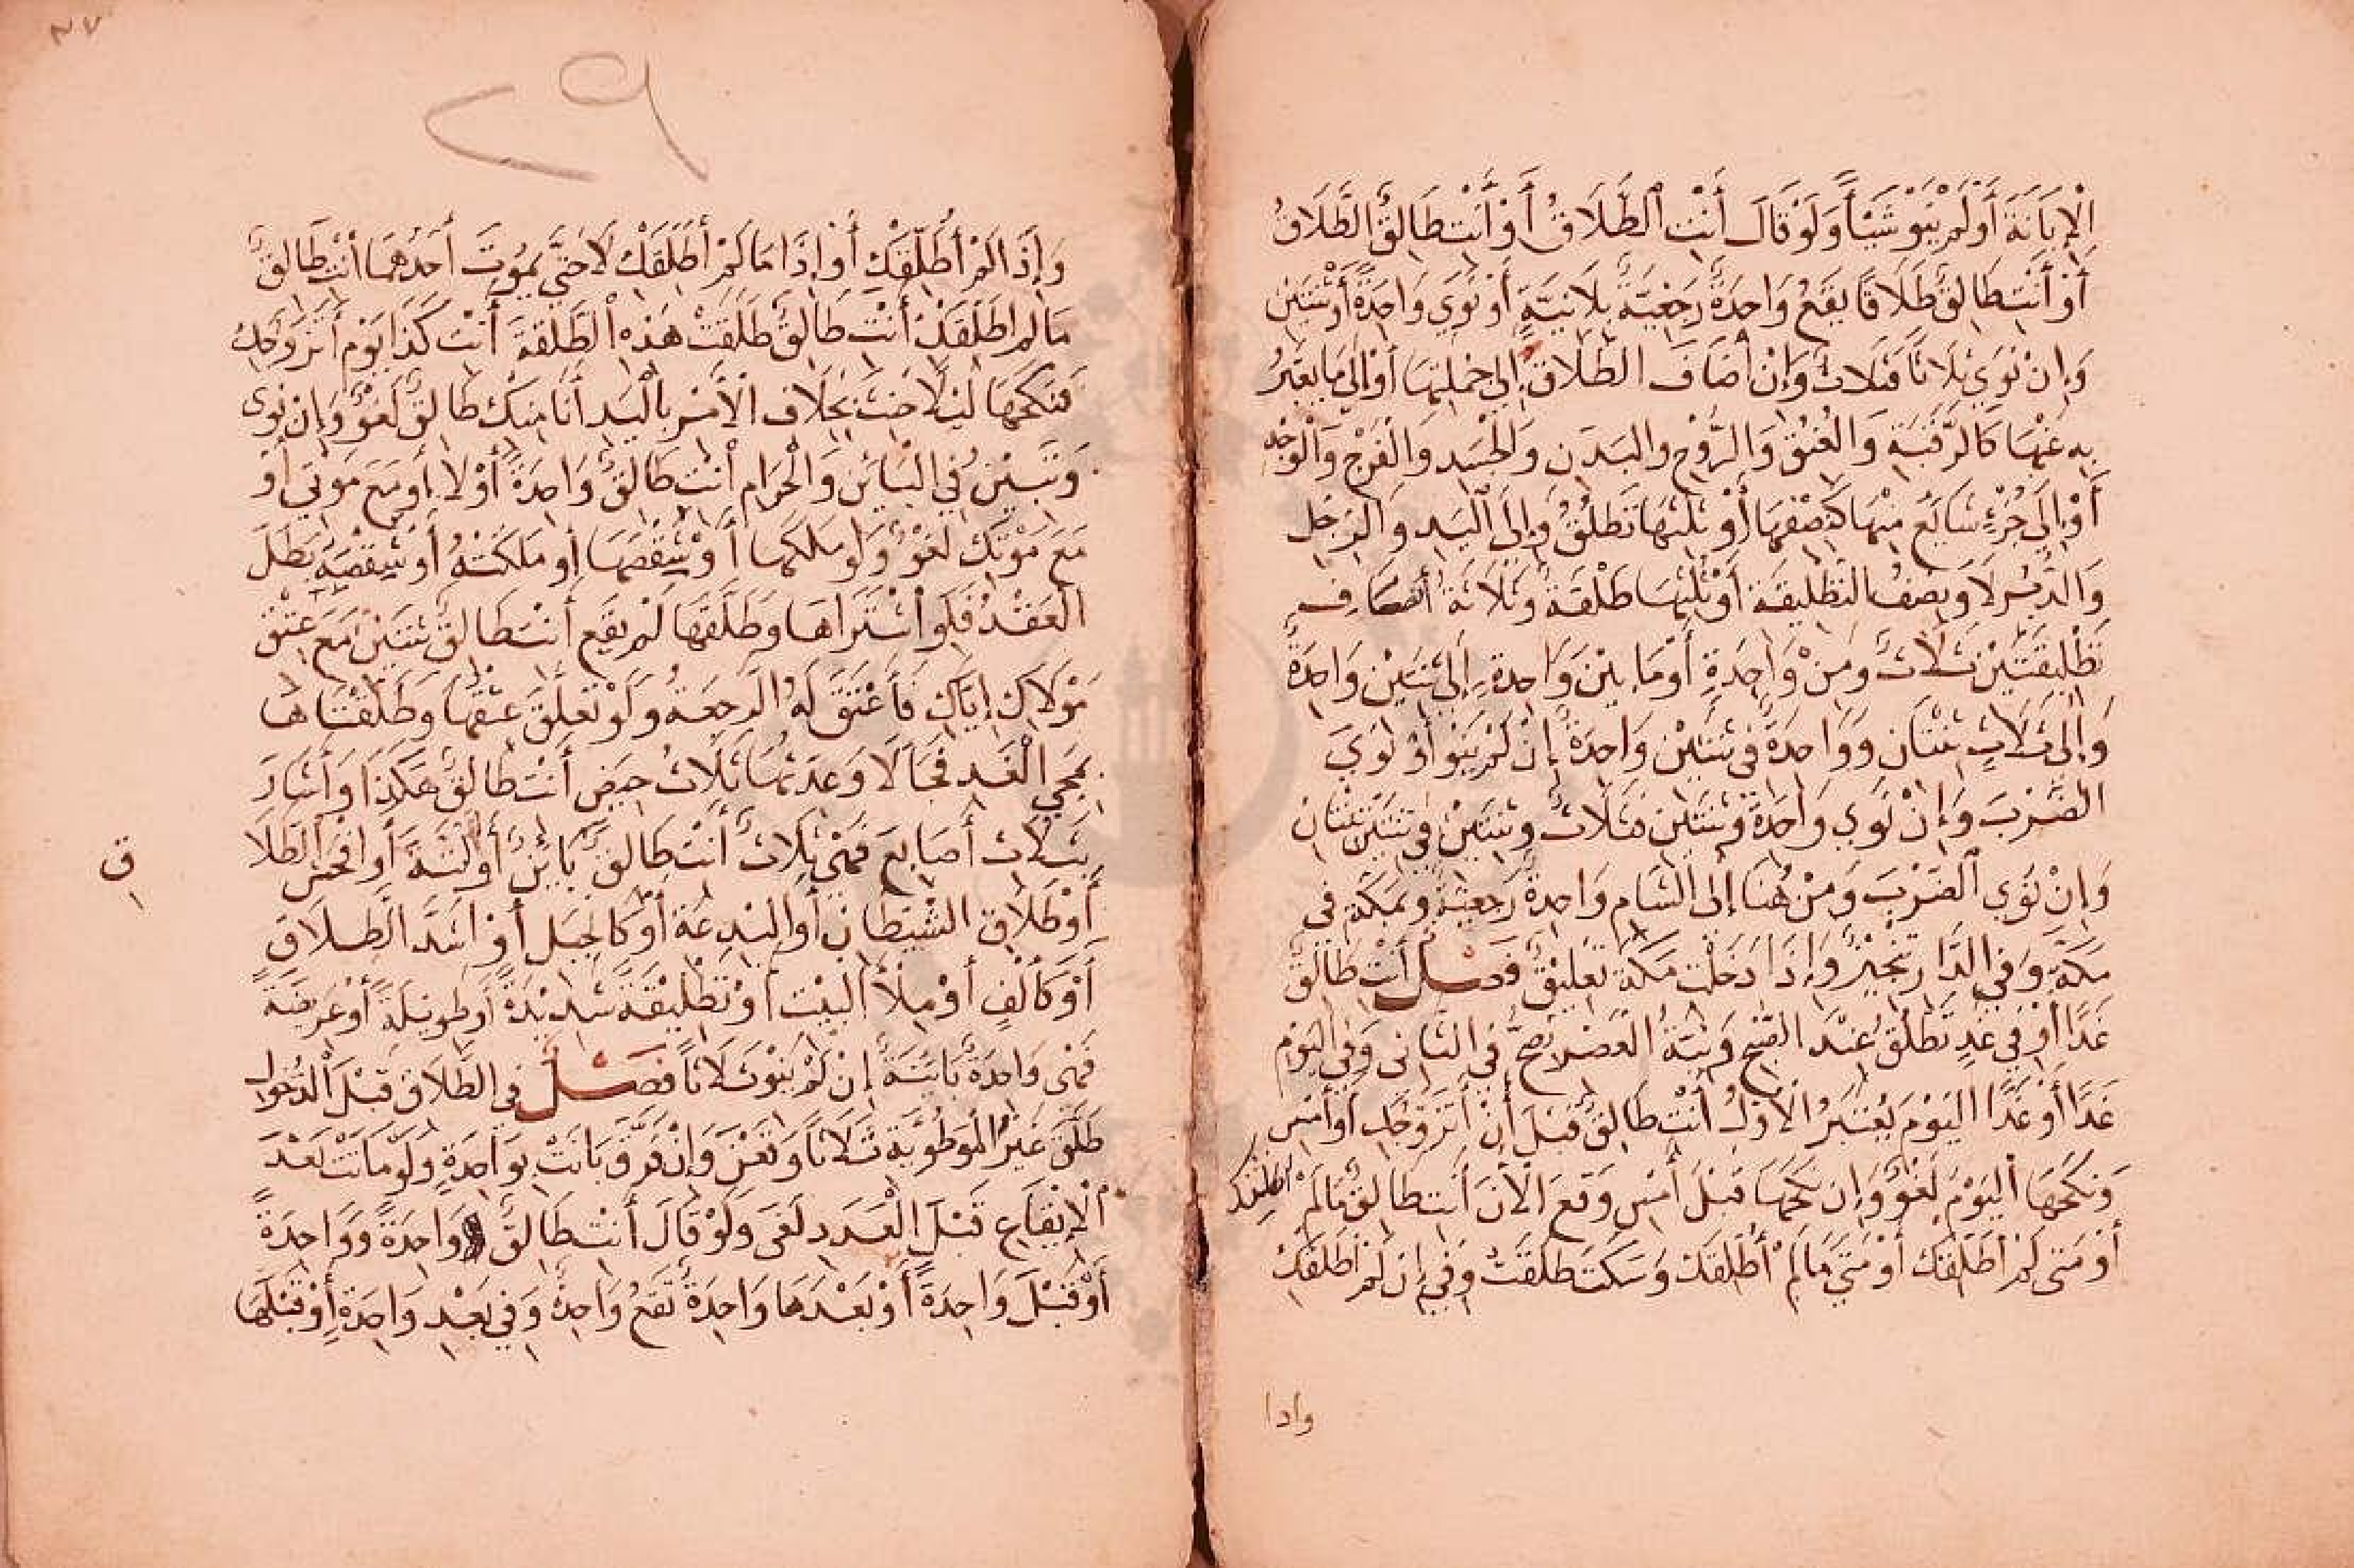 الْإِبَانَةَ أَوْ لَمْ يَنْوِ شَيْأً وَلَوْ قَالَ أَنْتِ الطَّلَاقُ أَوْ أَنْتِ طَالِقٌ الطَّلَاقَ
أَوْ أَنْتِ طَالِقٌ طَلَاقًا يَقَعُ وَاحِدَةً رَجْعِيَّةً بِلَا نِيَّةٍ أَوْ نَوَى وَاحِدَةً أَوْ ثِنْتَيْنِ
وَإِنْ نَوَى ثَلَاثًا فَثَلَاثٌ وَإِنْ أَضَافَ الطَّلَاقَ إِلَى جُمْلَتِهَا أَوْ إِلَى مَا يُعَبَّرُ
بِهِ عَنْهَا كَالرَّقَبَةِ وَالْعُنُقِ وَالرُّوْحِ وَالبَدَنِ وَالْجَسَدِ وَالْفَرْجِ وَالْوَجْهِ
أَوْ إِلَى جُزْءٍ شَايِعٍ مِنْهَا كَنِصْفِهَا أَوْ ثُلُثِهَا تَطْلُقُ وَإِلَى الْيَدِ وَالرِّجْلِ
وَالدُّبُرِ لَا وَنِصْفُ التَّطْلِيقَةِ أَوْ ثُلُثُهَا طَلْقَةٌ وَثَلَاثَةُ أَنْصَافِ
تَطْلِيقَتَيْنِ ثَلَاثٌ وَمِنْ وَاحِدَةٍ أَوْ مَا بَيْنَ وَاحِدَةٍ إِلَى ثِنْتَيْنِ وَاحِدَةٌ
وَإِلَى ثَلَاثٍ ثِنْتَانِ وَوَاحِدَةٌ فِي ثِنْتَيْنِ وَاحِدَةٌ إِنْ لَمْ يَنْوِ أَوْ نَوَى
الضَّرْبَ وَإِنْ نَوَى وَاحِدَةً وَثِنْتَيْنِ فَثَلَاثٌ وَثِنْتَيْنِ فِي ثِنْتَيْنِ ثِنْتَانِ
وَإِنْ نَوَى الضَّرْبَ وَمِنْ هُنَا إِلَى الشَّامِ وَاحِدَةٌ رَجْعِيَّةٌ وَبِمَكَّةَ فِي
مَكَّةَ وَفِي الدَّارِ تَنْجِيْزٌ وَإِذَا دَخَلْتِ مَكَّةَ تَعْلِيْقٌ فَصْلٌ أَنْتِ طَالِقٌ
غَدًا أَوْ فِي غَدٍ تَطْلُقُ عِنْدَ الصُّبْحِ وَنِيَّةُ الْعَصْرِ تَصِحُّ فِي الثَّانِي وَفِي الْيَوْمِ
غَدًا أَوْ غَدًا الْيَوْمَ يُعْتَبَرُ الْأَوَّلُ أَنْتِ طَالِقٌ قَبْلَ أَنْ أَتَزَوَّجَكِ أَوْ أَمْسِ
وَنَكَحَهَا الْيَوْمَ لَغْوٌ وَإِنْ نَكَحَهَا قَبْلَ أَمْسِ وَقَعَ الْآنَ أَنْتِ طَالِقٌ مَا لَمْ أُطَلِّقْكِ
أَوْ مَتَى لَمْ أُطَلِّقْكِ أَوْ مَتَى مَا لَمْ أُطَلِّقْكِ وَسَكَتَ طَلُقَتْ وَفِي إِنْ لَمْ أُطَلِّقْكِ
وادا
٢٩
٢٧
وَإِذَا لَمْ أُطَلِّقْكِ أَوْ إِذَا مَا لَمْ أُطَلِّقْكِ لَا حَتَّى يَمُوْتَ أَحَدُهُمَا أَنْتِ طَالِقٌ
مَا لَمْ أُطَلِّقْكِ أَنْتِ طَالِقٌ طَلُقَتْ هَذِهِ الطَّلْقَةَ أَنْتِ كَذَا يَوْمَ أَتَزَوَّجُكِ
فَنَكَحَهَا لَيْلًا حَنِثَ بِخِلَافِ الْأَمْرِ بِالْيَدِ أَنَا مِنْكِ طَالِقٌ لَغْوٌ وَإِنْ نَوَى
وَتَبِيْنُ فِي الْبَائِنِ وَالْحَرَامِ أَنْتِ طَالِقٌ وَاحِدَةً أَوْ لَا أَوْ مَعَ مَوْتِي أَوْ
مَعَ مَوْتِكِ لَغْوٌ وَلَوْ مَلَكَهَا أَوْ شِقْصَهَا أَوْ مَلَكَتْهُ أَوْ شِقْصَهُ بَطَلَ
الْعَقْدُ فَلَوِ اشْتَرَاهَا وَطَلَّقَهَا لَمْ يَقَعْ أَنْتِ طَالِقٌ ثِنْتَيْنِ مَعَ عِتْقِ
مَوْلَاكِ إِيَّاكِ فَأَعْتَقَ لَهُ الرَّجْعَةُ وَلَوْ تَعَلَّقَ عِتْقُهَا وَطَلْقَتَاهَا
بِمَجِيءِ الْغَدِ فَجَاءَ لَا وَعِدَّتُهَا ثَلَاثُ حِيَضٍ أَنْتِ طَالِقٌ هَكَذَا وَأَشَارَ
بِثَلَاثِ أَصَابِعَ فَهِيَ ثَلَاثٌ أَنْتِ طَالِقٌ بَايِنٌ أَوْ الْبَتَّةَ أَوْ أَفْحَشَ الطَّلَا
ق
أَوْ طَلَاقَ الشَّيْطَانِ أَوْ الْبِدْعَةِ أَوْ كَالْجَبَلِ أَوْ أَشَدَّ الطَّلَاقِ
أَوْ كَأَلْفٍ أَوْ مِلْأَ الْبَيْتِ أَوْ تَطْلِيْقَةً شَدِيْدَةً أَوْ طَوِيْلَةً أَوْ عَرِيْضَةً
فَهِيَ وَاحِدَةٌ بَايِنَةٌ إِنْ لَمْ يَنْوِ ثَلَاثًا فَصْلٌ فِي الطَّلَاقِ قَبْلَ الدُّخُولِ
طَلَّقَ غَيْرَ الْمَوْطُوْيَةِ ثَلَاثًا وَقَعْنَ وَإِنْ فَرَّقَ بَانَتْ بِوَاحِدَةٍ وَلَوْ مَاتَتْ بَعْدَ
الْإِيْقَاعِ قَبْلَ الْعَدَدِ لَغَى وَلَوْ قَالَ أَنْتِ طَالِقٌ وَاحِدَةً وَوَاحِدَةً
أَوْ قَبْلَ وَاحِدَةً أَوْ بَعْدَهَا وَاحِدَةٌ تَقَعُ وَاحِدَةٌ وَفِي بَعْدِ وَاحِدَةٍ أَوْ قَبْلَهَا